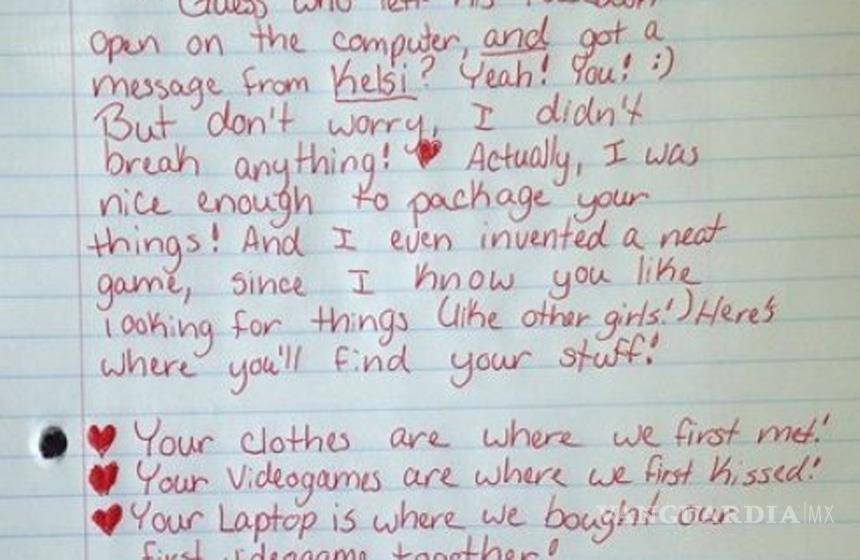 Guess who left his
open on the computer, and got a
message from Kelsi? Yeah! You! :)
But don't worry, I didn't
break anything! ♥ Actually, I was
nice enough to package your
things! And I even invented a neat
game, since I know you like
looking for things (like other girls!) Here's
where you'll find your stuff!
♥ Your clothes are where we first met!
♥ Your Videogames are where we first kissed!
♥ Your Laptop is where we bought our
first videogame together!
VANGUARDIA|MX